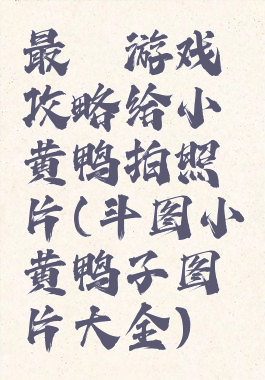 最 游戏
攻略给小
黄鸭拍照
片(斗图小
黄鸭子图
片大全)